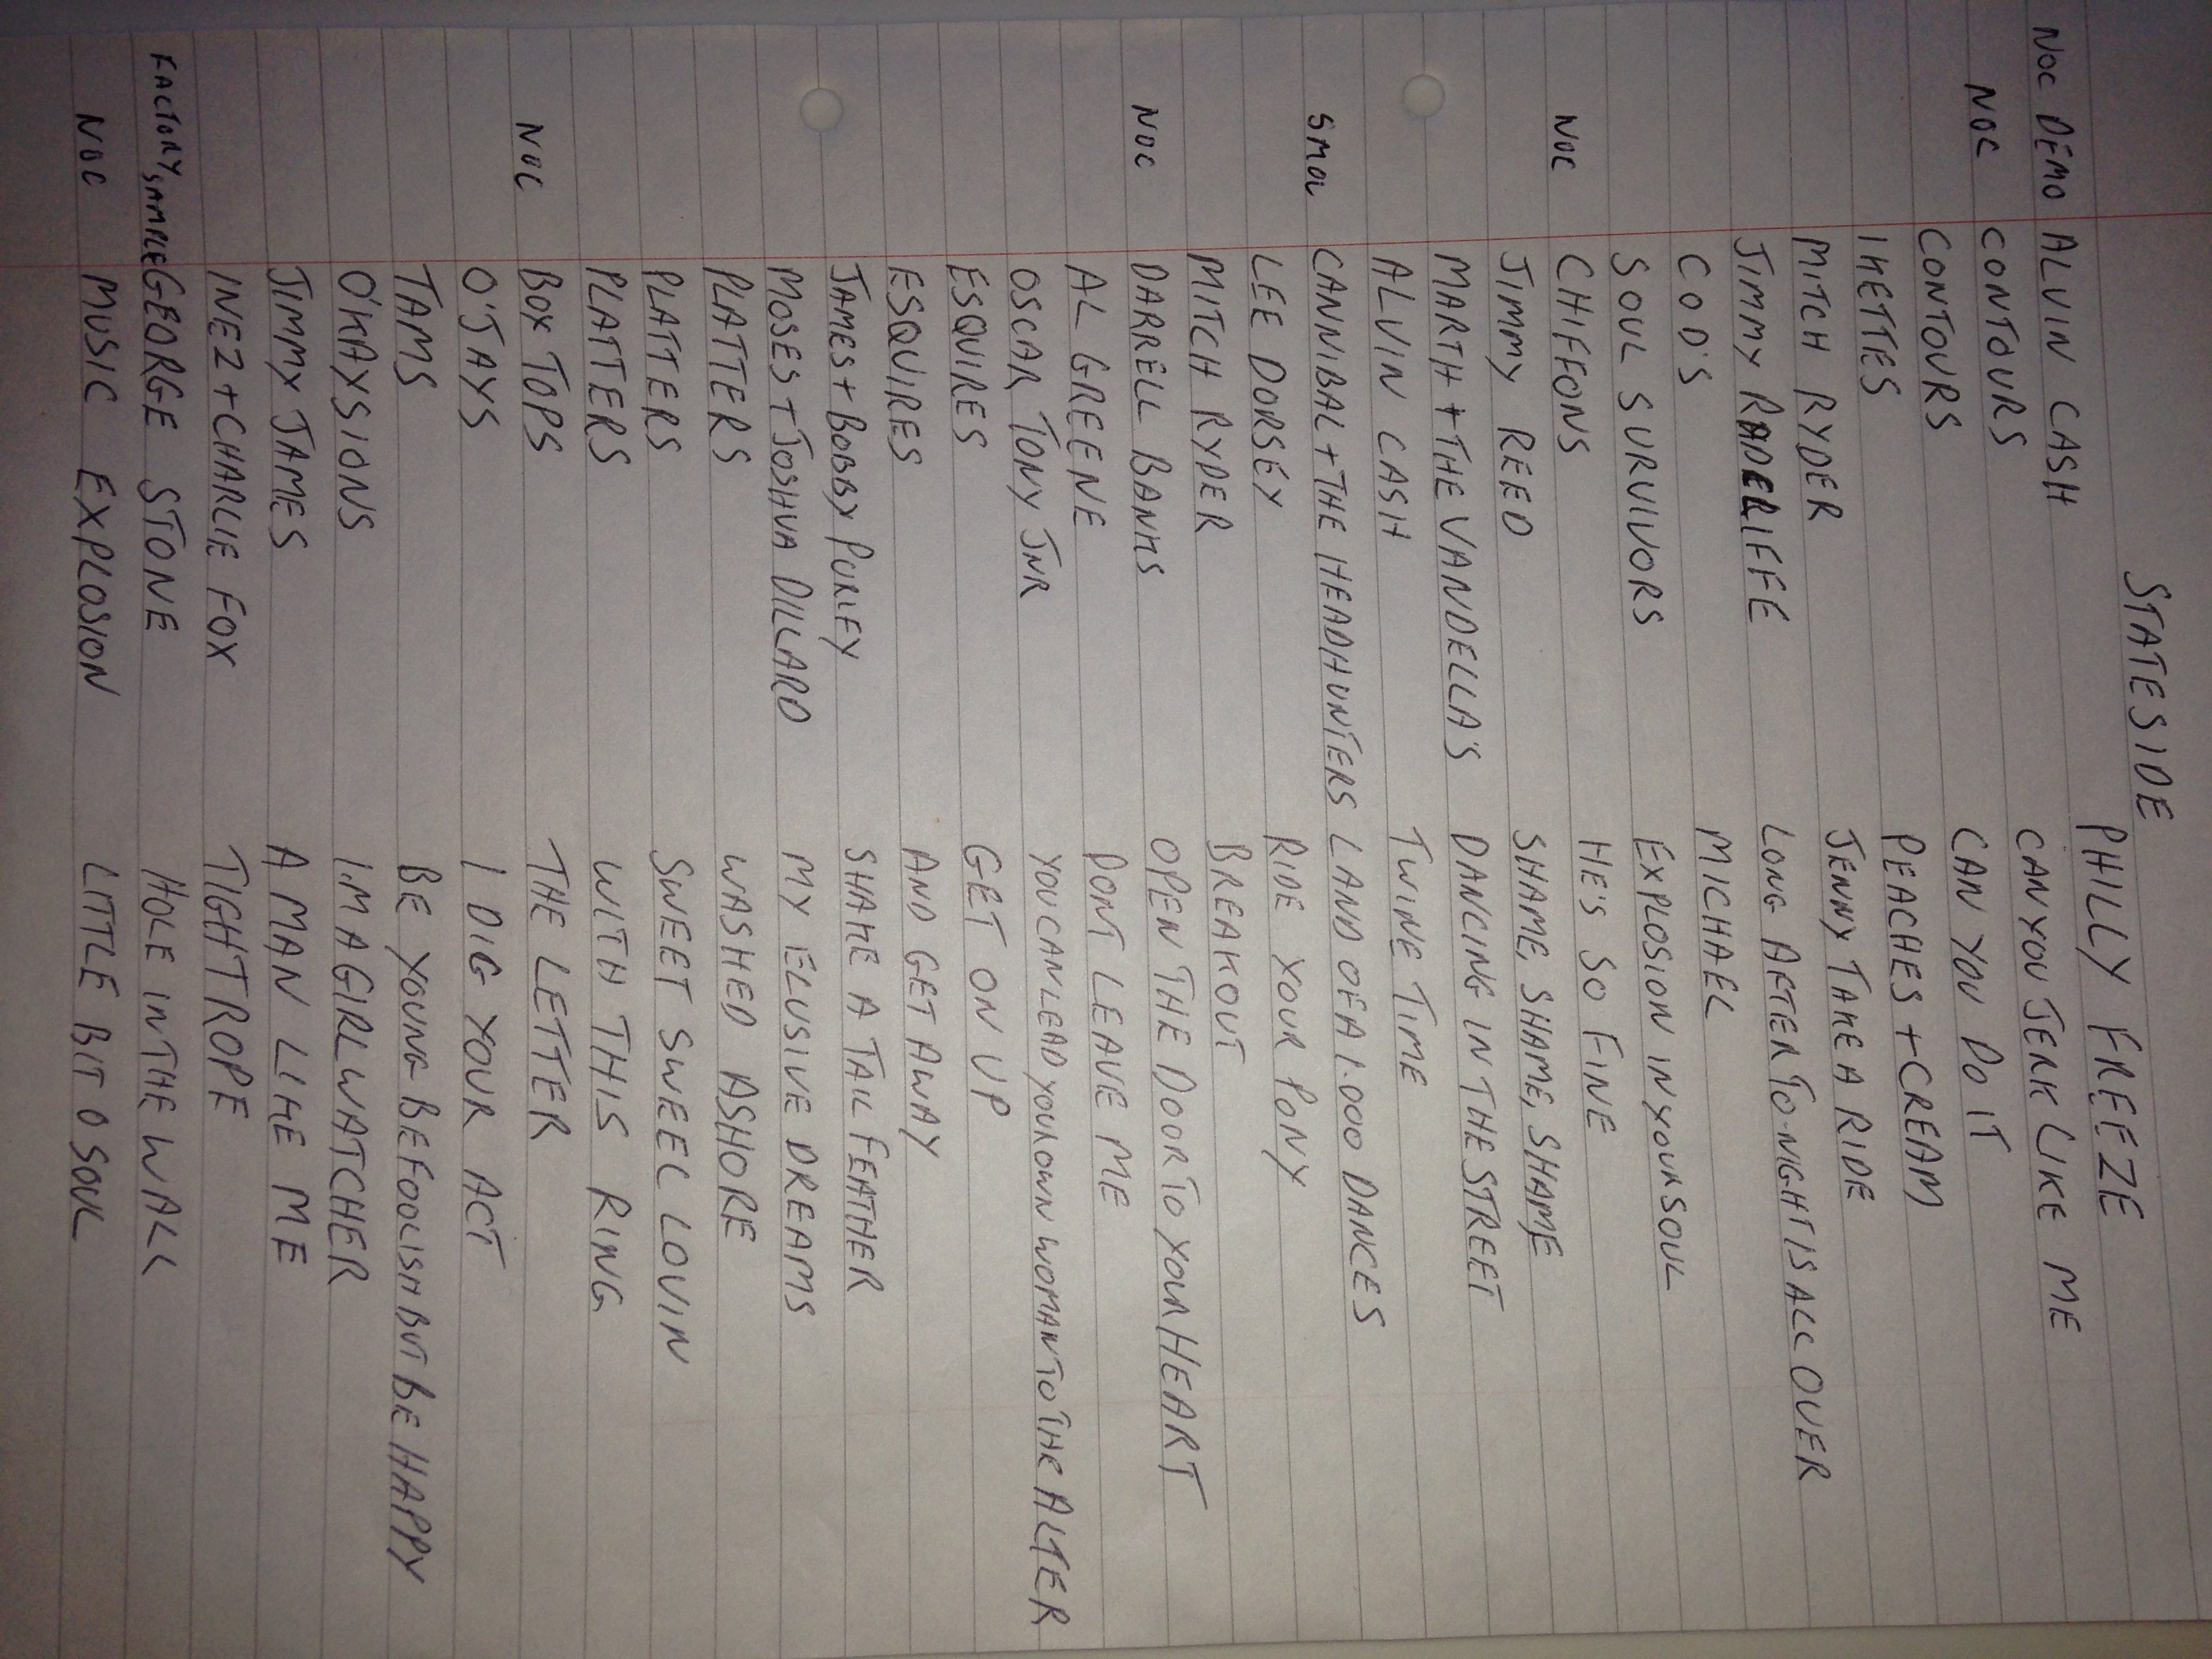 STATESIDE
NOC DEMO ALVIN CASH PHILLY FREEZE
NOC CONTOURS CAN YOU JERK LIKE ME
CONTOURS CAN YOU DO IT
IKETTES PEACHES + CREAM
MITCH RYDER JENNY TAKE A RIDE
JIMMY RADCLIFFE LONG AFTER TO-NIGHT IS ALL OVER
C O D'S MICHAEL
SOUL SURVIVORS EXPLOSION IN YOUR SOUL
NOC CHIFFONS HE'S SO FINE
JIMMY REED SHAME, SHAME, SHAME
MARTH + THE VANDELLA'S DANCING IN THE STREET
ALVIN CASH TWINE TIME
SMOL CANNIBAL + THE HEADHUNTERS LAND OF A 1.000 DANCES
LEE DORSEY RIDE YOUR PONY
MITCH RYDER BREAKOUT
NOC DARRELL BANKS OPEN THE DOOR TO YOUR HEART
AL GREENE DONT LEAVE ME
OSCAR TONY JNR YOU CAN LEAD YOUR OWN WOMAN TO THE ALTER
ESQUIRES GET ON UP
ESQUIRES AND GET AWAY
JAMES + BOBBY PURIFY SHAKE A TAIL FEATHER
MOSES + JOSHUA DILLARD MY ELUSIVE DREAMS
PLATTERS WASHED ASHORE
PLATTERS SWEET SWEEL LOVIN
PLATTERS WITH THIS RING
NOC BOX TOPS THE LETTER
O'JAYS I DIG YOUR ACT
TAMS BE YOUNG BE FOOLISH BUT BE HAPPY
O'KAYSIONS I.M A GIRL WATCHER
JIMMY JAMES A MAN LIKE ME
INEZ + CHARLIE FOX TIGHTROPE
FACTORY SAMPLE GEORGE STONE HOLE IN THE WALL
NOC MUSIC EXPLOSION LITTLE BIT O SOUL